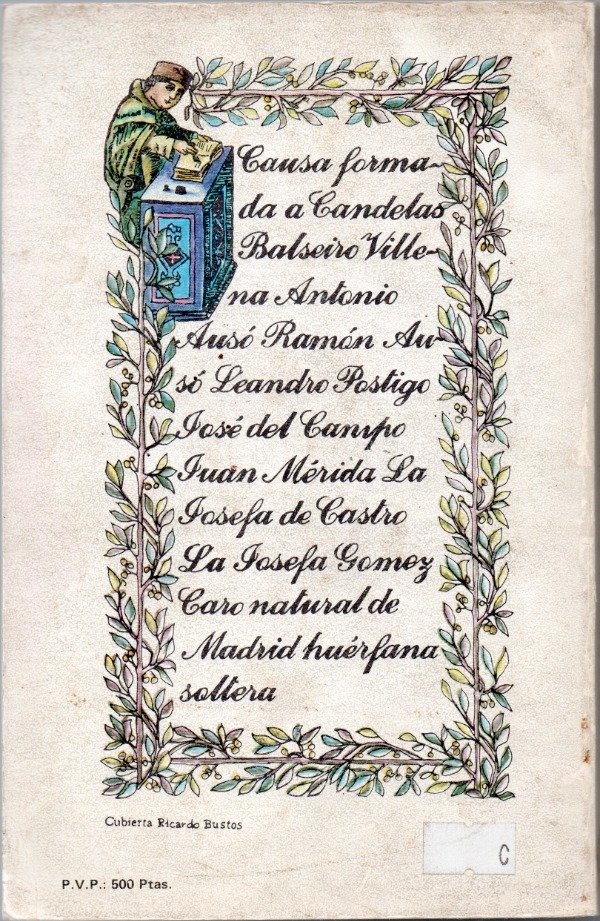 Causa forma-
da a Candelas
Balseiro Ville-
na Antonio
Ausó Ramón Au-
só Leandro Postigo
José del Campo
Juan Mérida La
Josefa de Castro
La Josefa Gomez
Caro natural de
Madrid huérfana
soltera
Cubierta Ricardo Bustos
C
P.V.P.: 500 Ptas.